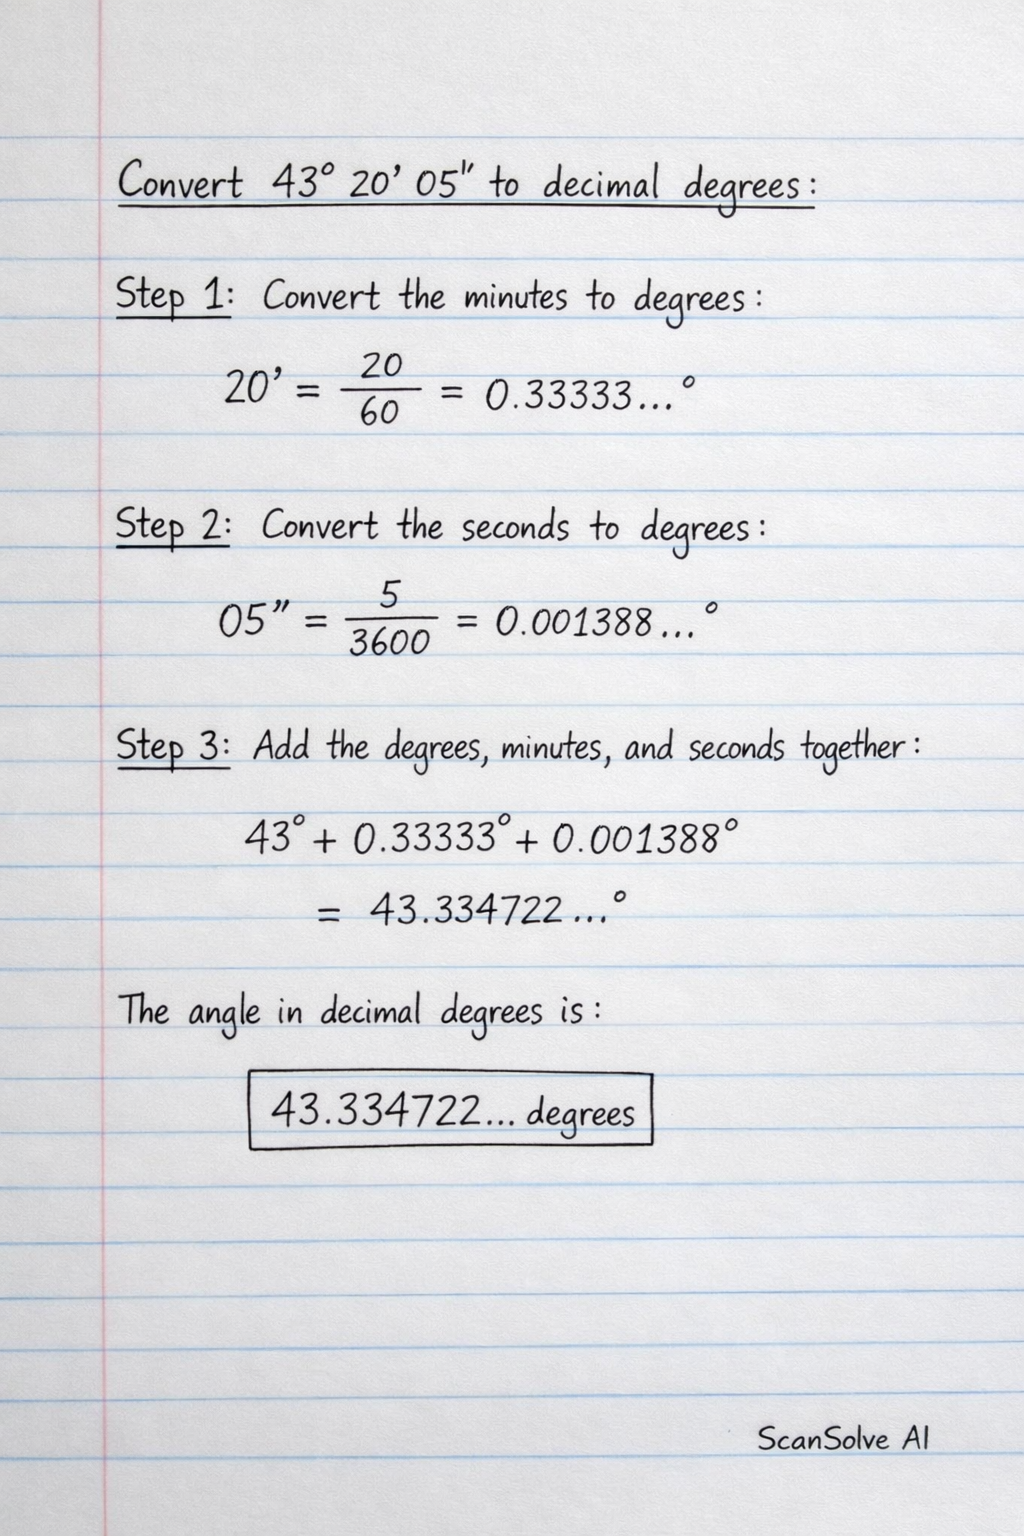 Convert 43° 20' 05" to decimal degrees:
Step 1: Convert the minutes to degrees:
20' = 20/60 = 0.33333...°
Step 2: Convert the seconds to degrees:
05" = 5/3600 = 0.001388...°
Step 3: Add the degrees, minutes, and seconds together:
43° + 0.33333° + 0.001388°
= 43.334722...°
The angle in decimal degrees is:
43.334722... degrees
ScanSolve AI